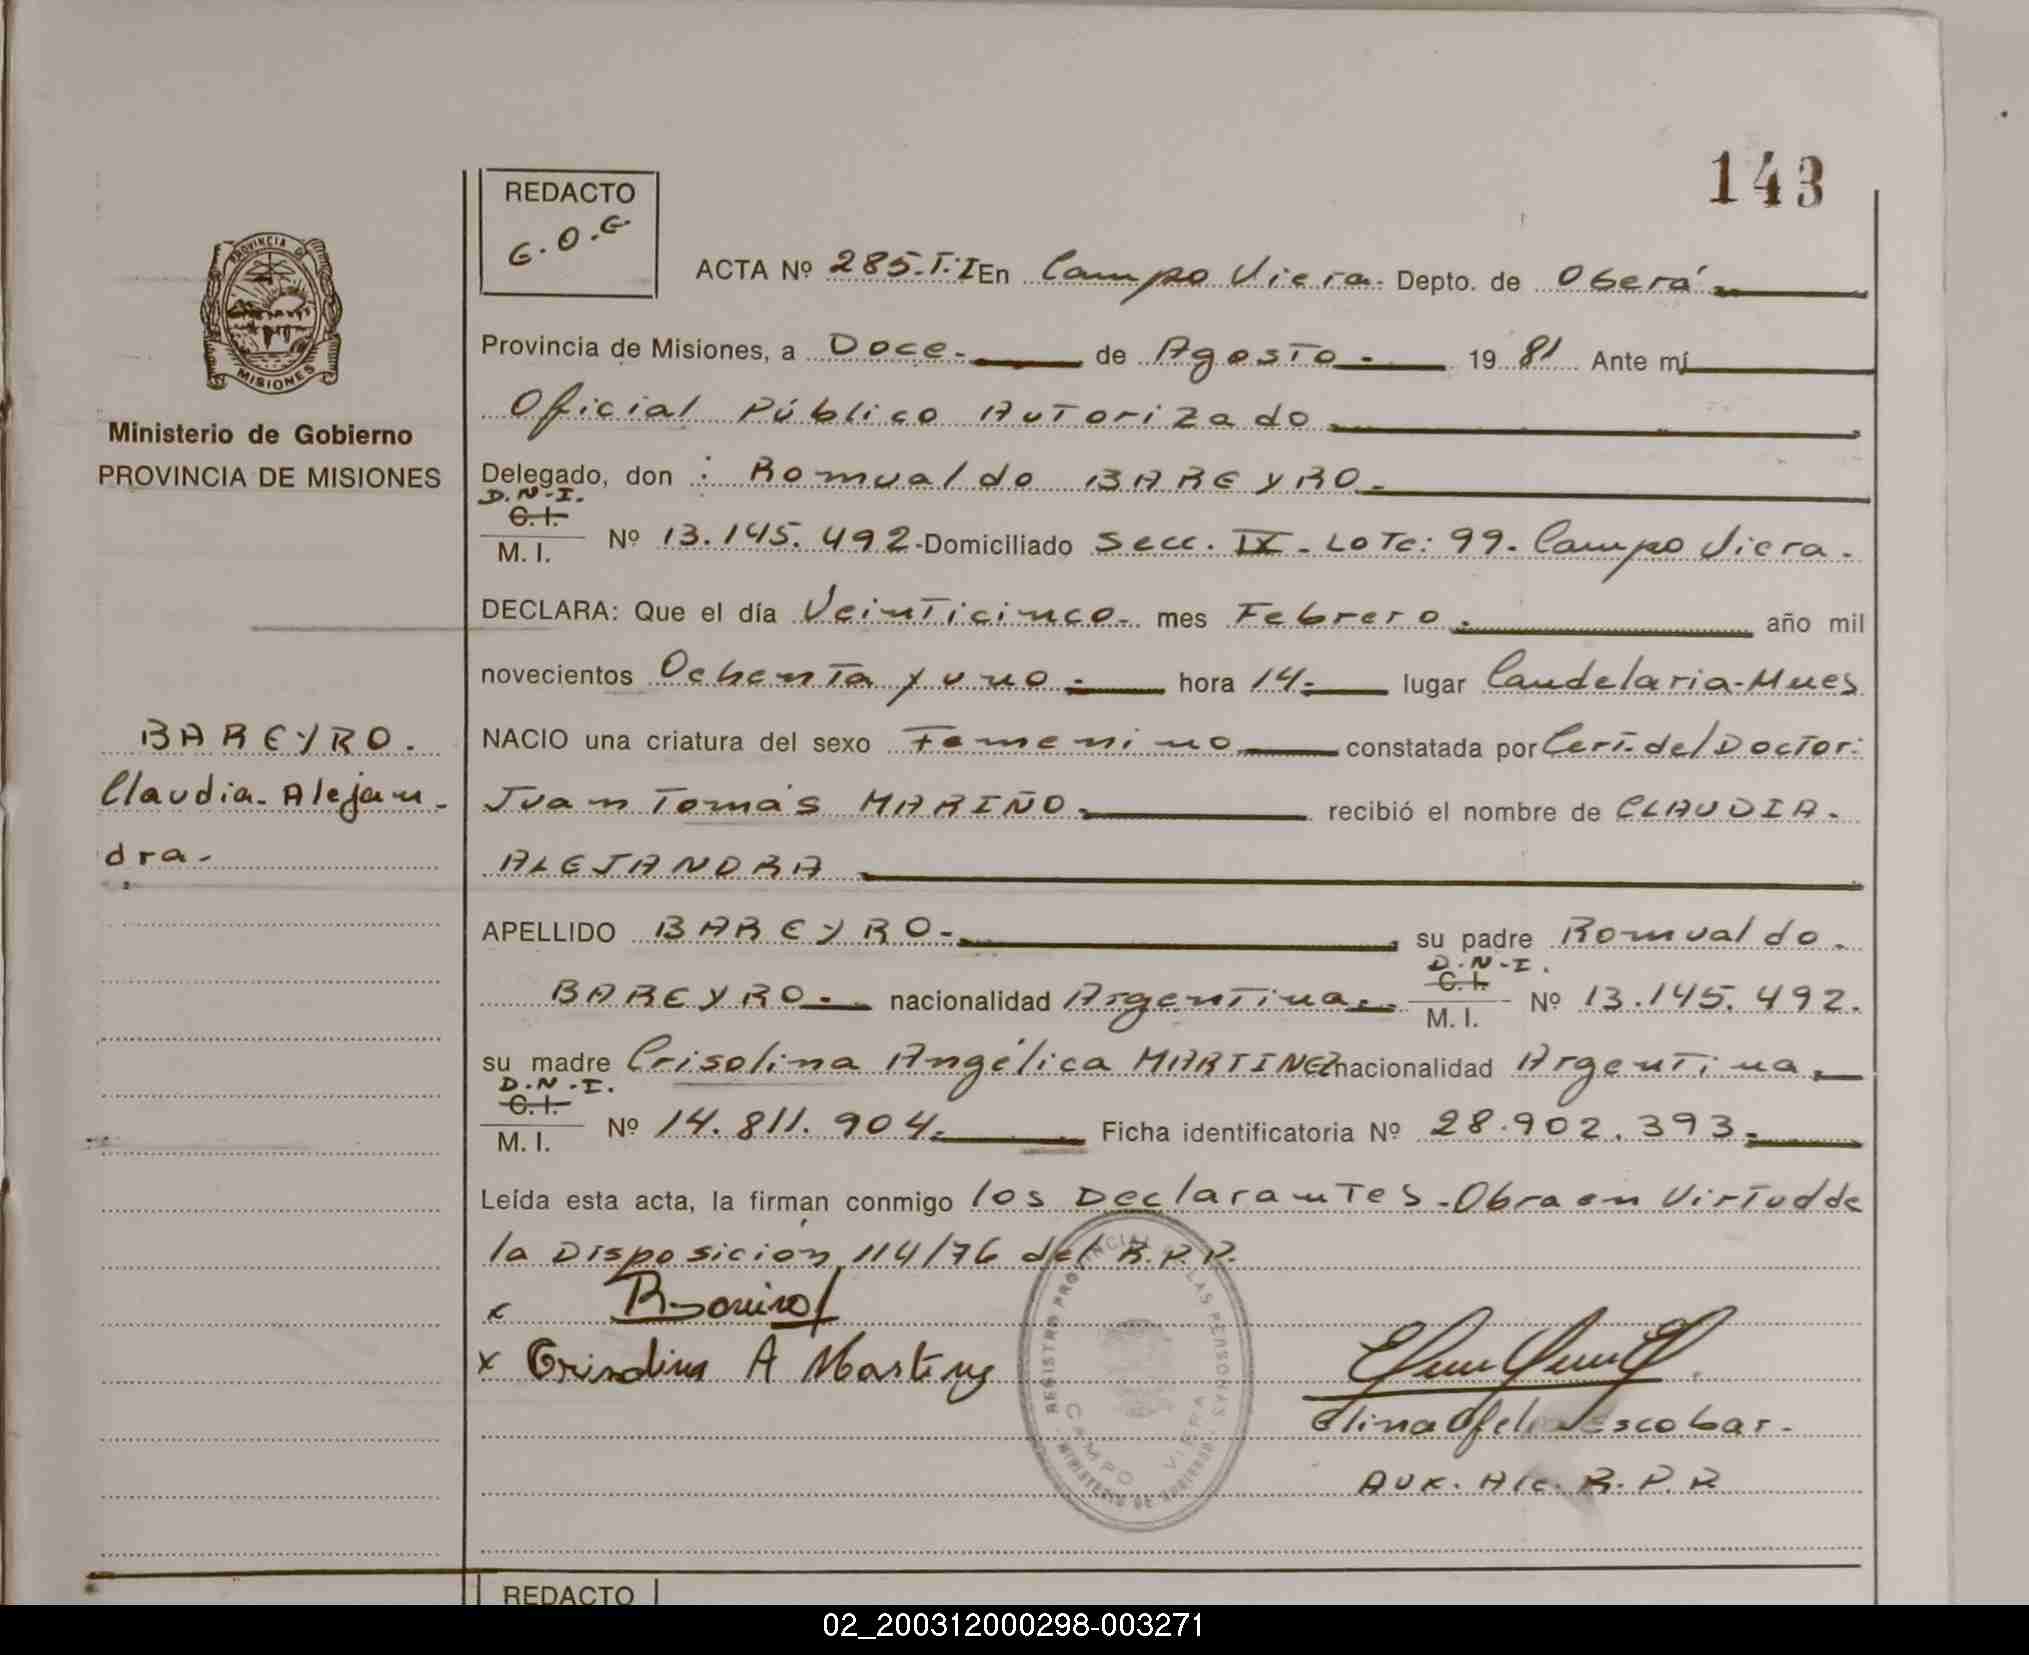 143
REDACTO
G.O.G
ACTA Nº 285.T:I En Campo Viera. Depto. de Oberá.
Provincia de Misiones, a Doce. de Agosto. 19 81 Ante mí
Oficial Público Autorizado
Delegado, don : Romualdo BAREYRO.
D.N.I.
C.I.
M. I. Nº 13.145.492. Domiciliado Secc. IX. Lote: 99. Campo Viera.
DECLARA: Que el día Veinticinco. mes Febrero. año mil
novecientos Ochenta y uno. hora 14. lugar Candelaria-Mnes
NACIO una criatura del sexo Femenino constatada por Cert. del Doctor:
Juan Tomás MARIÑO. recibió el nombre de CLAUDIA.
ALEJANDRA
APELLIDO BAREYRO. su padre Romualdo.
BAREYRO. nacionalidad Argentina. D.N.I. C.I. M. I. Nº 13.145.492.
su madre Crisolina Angélica MARTINEZ nacionalidad Argentina.
D.N.I.
C.I.
M. I. Nº 14.811.904. Ficha identificatoria Nº 28.902.393.
Leída esta acta, la firman conmigo los Declarantes. Obra en Virtud de
la Disposición 114/76 del R.P.P.
x
x A
Elina Escobar.
Aux. R.P.P.
REGISTRO PROVINCIAL LAS PERSONAS
CAMPO VIERA
MINISTERIO DE GOBIERNO
PROVINCIA DE
MISIONES
Ministerio de Gobierno
PROVINCIA DE MISIONES
BAREYRO.
Claudia. Alejan.
dra.
REDACTO
02_200312000298-003271